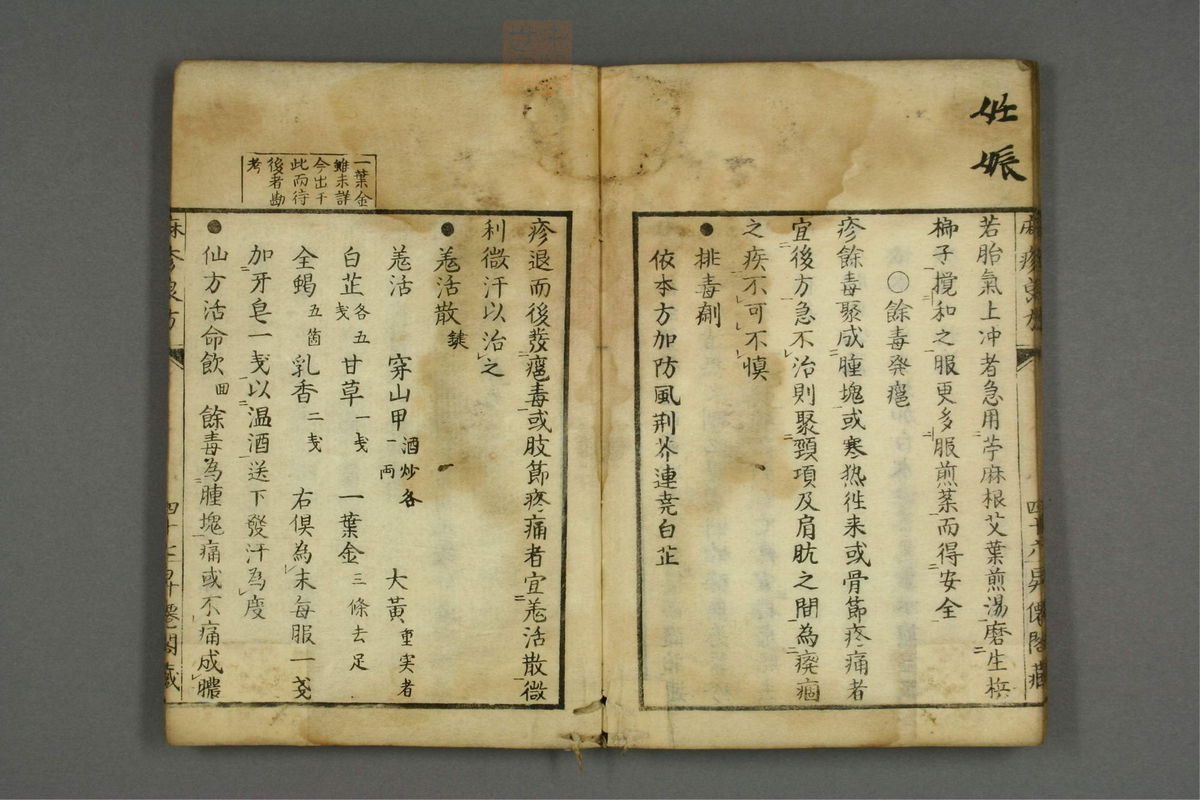 妊娠
若胎氣上冲者急用苧麻根艾葉煎湯磨生梹
榔子攪和之服更多服煎薬而得安全
○餘毒発瘡
疹餘毒聚成腫塊或寒热徃来或骨節疼痛者
宜後方急不治則聚頸項及肩肮之間為廃痼
之疾不可不慎
●排毒劑
依本方加防風荊芥連尭白芷
疹退而後發瘡毒或肢節疼痛者宜羌活散微
利微汗以治之
●羌活散
羌活 穿山甲酒炒各一両 大黄重实者
白芷各五戔 甘草一戔 一葉金三條去足
全蝎五箇 乳香二戔 右俱為末每服一戔
加牙皂一戔以温酒送下發汗為度
●仙方活命飲 餘毒為腫塊痛或不痛成膿
一葉金
雖未詳
今出于
此而待
後者勘
考